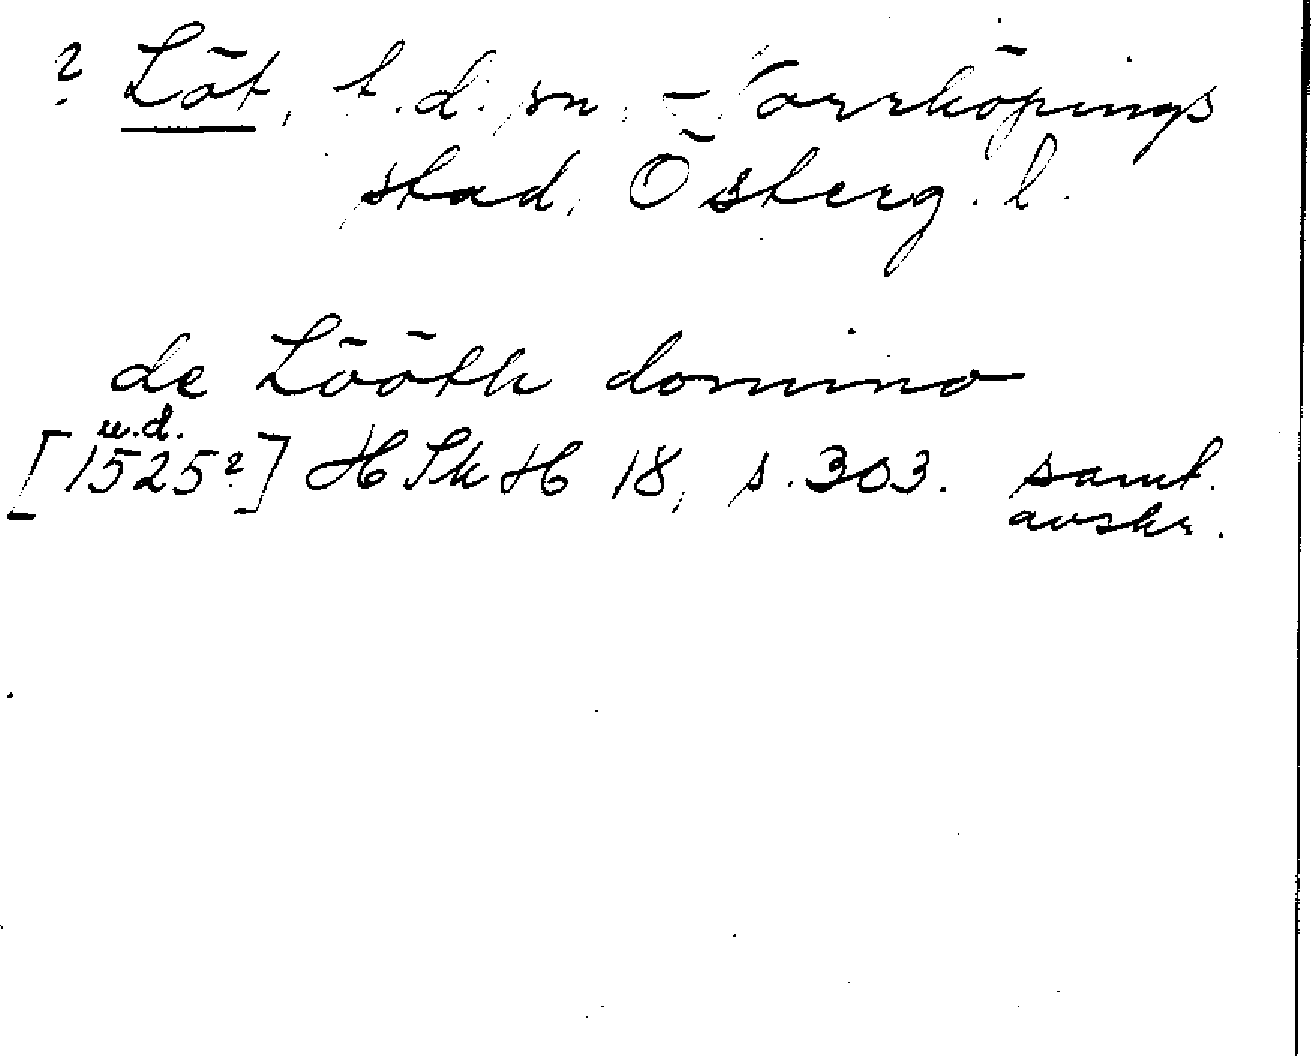 ? Löt, t.d. sn. = Norrköpings
stad, Österg. l.
de Lööth domino
u.d.
[1525?] HSkH 18, s. 303. samt.
avskr.